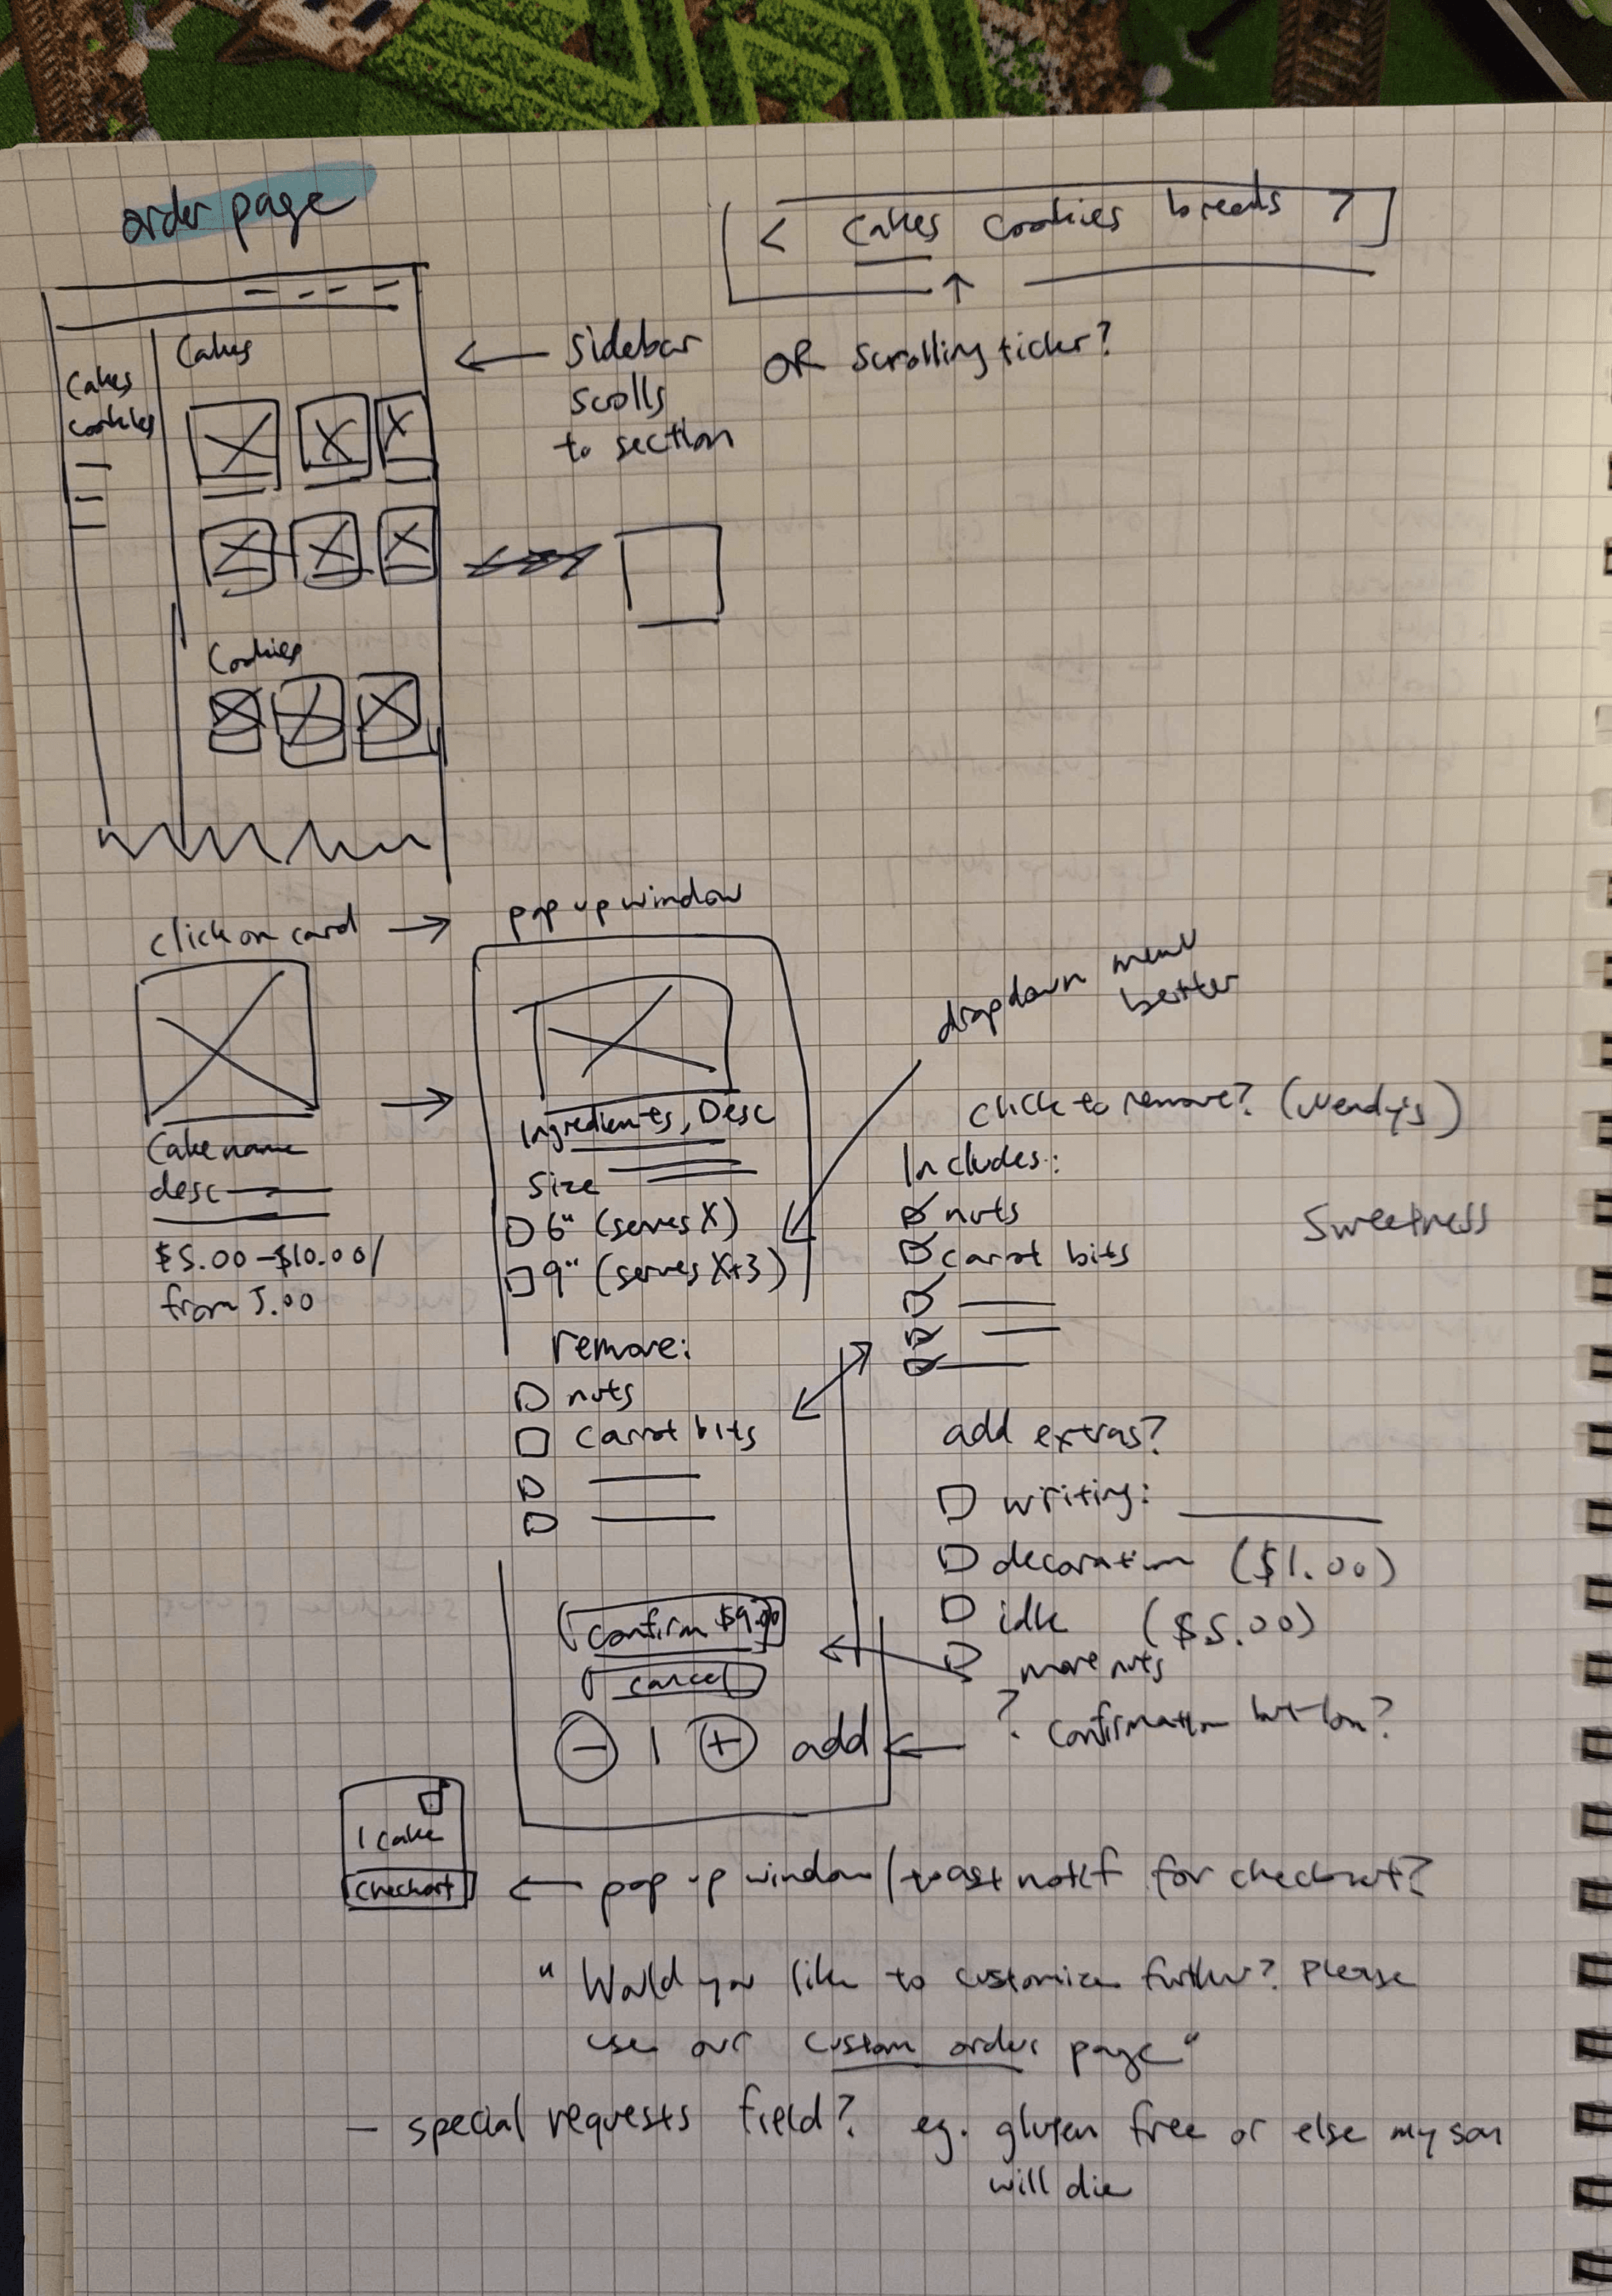 order page
< Cakes cookies breads >
Cakes
Cakes
cookies
← Sidebar
scrolls
to section
OR scrolling ticker?
Cookies
click on card → pop up window
Cake name
desc
$5.00-$10.00/
from 5.00
Ingredients, Desc
Size
6" (serves X)
9" (serves X+3)
remove:
nuts
carrot bits
Confirm $9.00
cancel
- 1 + add
dropdown menu
better
click to remove? (Wendy's)
Includes:
nuts
carrot bits
Sweetness
add extras?
writing:
decoration ($1.00)
idk ($5.00)
more nuts
? confirmation button?
1 cake
checkout
← pop up window/toast notif for checkout?
"Would you like to customize further? Please
use our custom order page"
- special requests field? eg. gluten free or else my son
will die